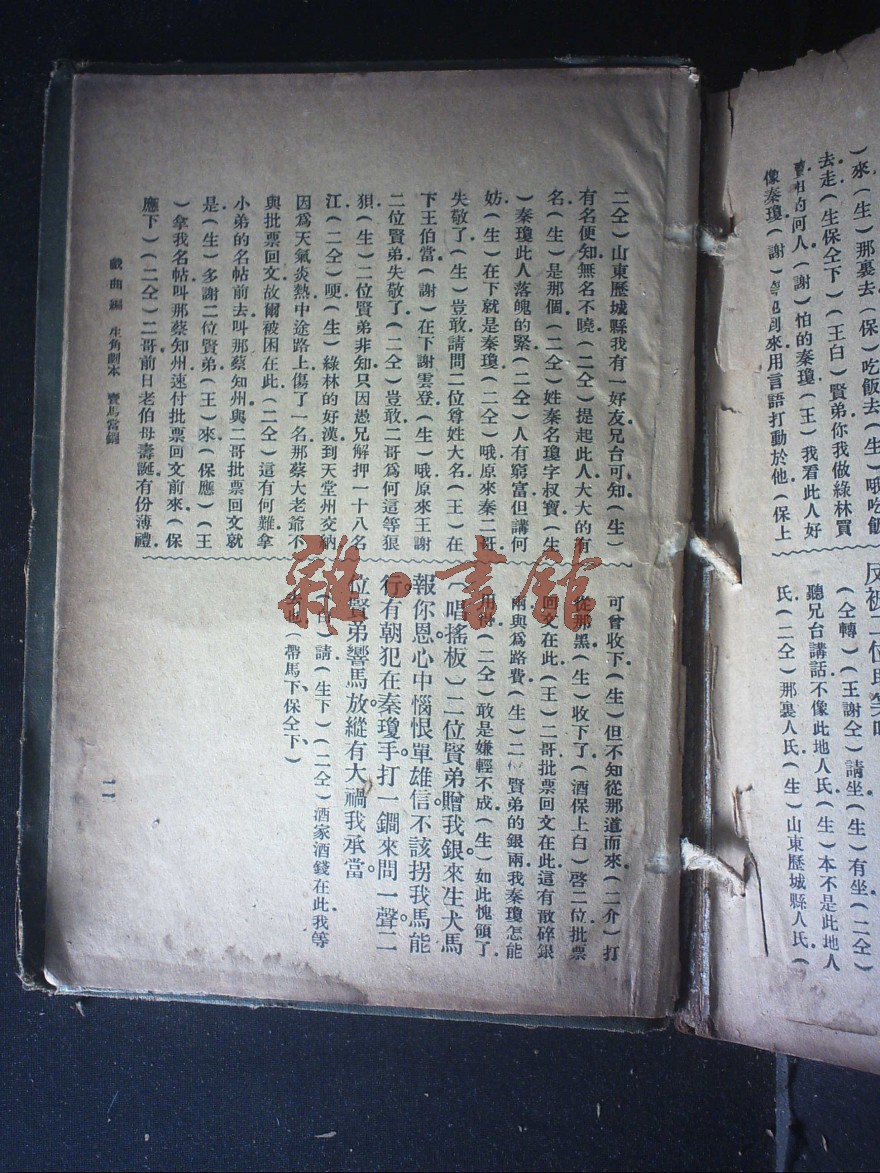 ）來（生）那裏去（保）吃飯去（生）哦吃飯
去走（生保仝下）（王白）賢弟你我做綠林買
的何人（謝）怕的秦瓊（王）我看此人好
像秦瓊（謝）到來用言語打動於他（保上
（仝轉）（王謝仝）請坐（生）有坐（二仝）
聽兄台講話不像此地人氏（生）本不是此地人
氏（二仝）那裏人氏（生）山東歷城縣人氏（
二仝）山東歷城縣我有一好友兄台可知（生）
有名便知無名不曉（二仝）提起此人大大的有
名（生）是那個（二仝）姓秦名瓊字叔寶（生
）秦瓊此人落魄的緊（二仝）人有窮富但講何
妨（生）在下就是秦瓊（二仝）哦原來秦二哥
失敬了（生）豈敢請問二位尊姓大名（王）在
下王伯當（謝）在下謝雲登（生）哦原來王謝
二位賢弟失敬了（二仝）豈敢二哥爲何這等狼
狽（生）二位賢弟非知只因愚兄解押一十八名
江（二仝）哽（生）綠林的好漢到天堂州交納
因爲天氣炎熱中途路上傷了一名那蔡大老爺不
與批票回文故爾被困在此（二仝）這有何難拿
小弟的名帖前去叫那蔡知州與二哥批票回文就
是（生）多謝二位賢弟（王）來（保應）（王
）拿我名帖叫那蔡知州速付批票回文前來（保
應下）（二仝）二哥前日老伯母壽誕有份薄禮
可曾收下（生）但不知從那道而來（二介）打
從那黑（生）收下了（酒保上白）啓二位批票
回文在此（王）二哥批票回文在此這有散碎銀
兩與爲路費（生）二位賢弟的銀兩我秦瓊怎能
用得（二仝）敢是嫌輕不成（生）如此愧領了
（唱搖板）二位賢弟贈我銀來生犬馬
報你恩心中惱恨單雄信不該拐我馬能
行有朝犯在秦瓊手打一鐧來問一聲二
位賢弟響馬放縱有大禍我承當
（白）請（生下）（二仝）酒家酒錢在此我等
去也（帶馬下保仝下）
戲曲編　生角劇本　賣馬當鐧
二
雜·書館